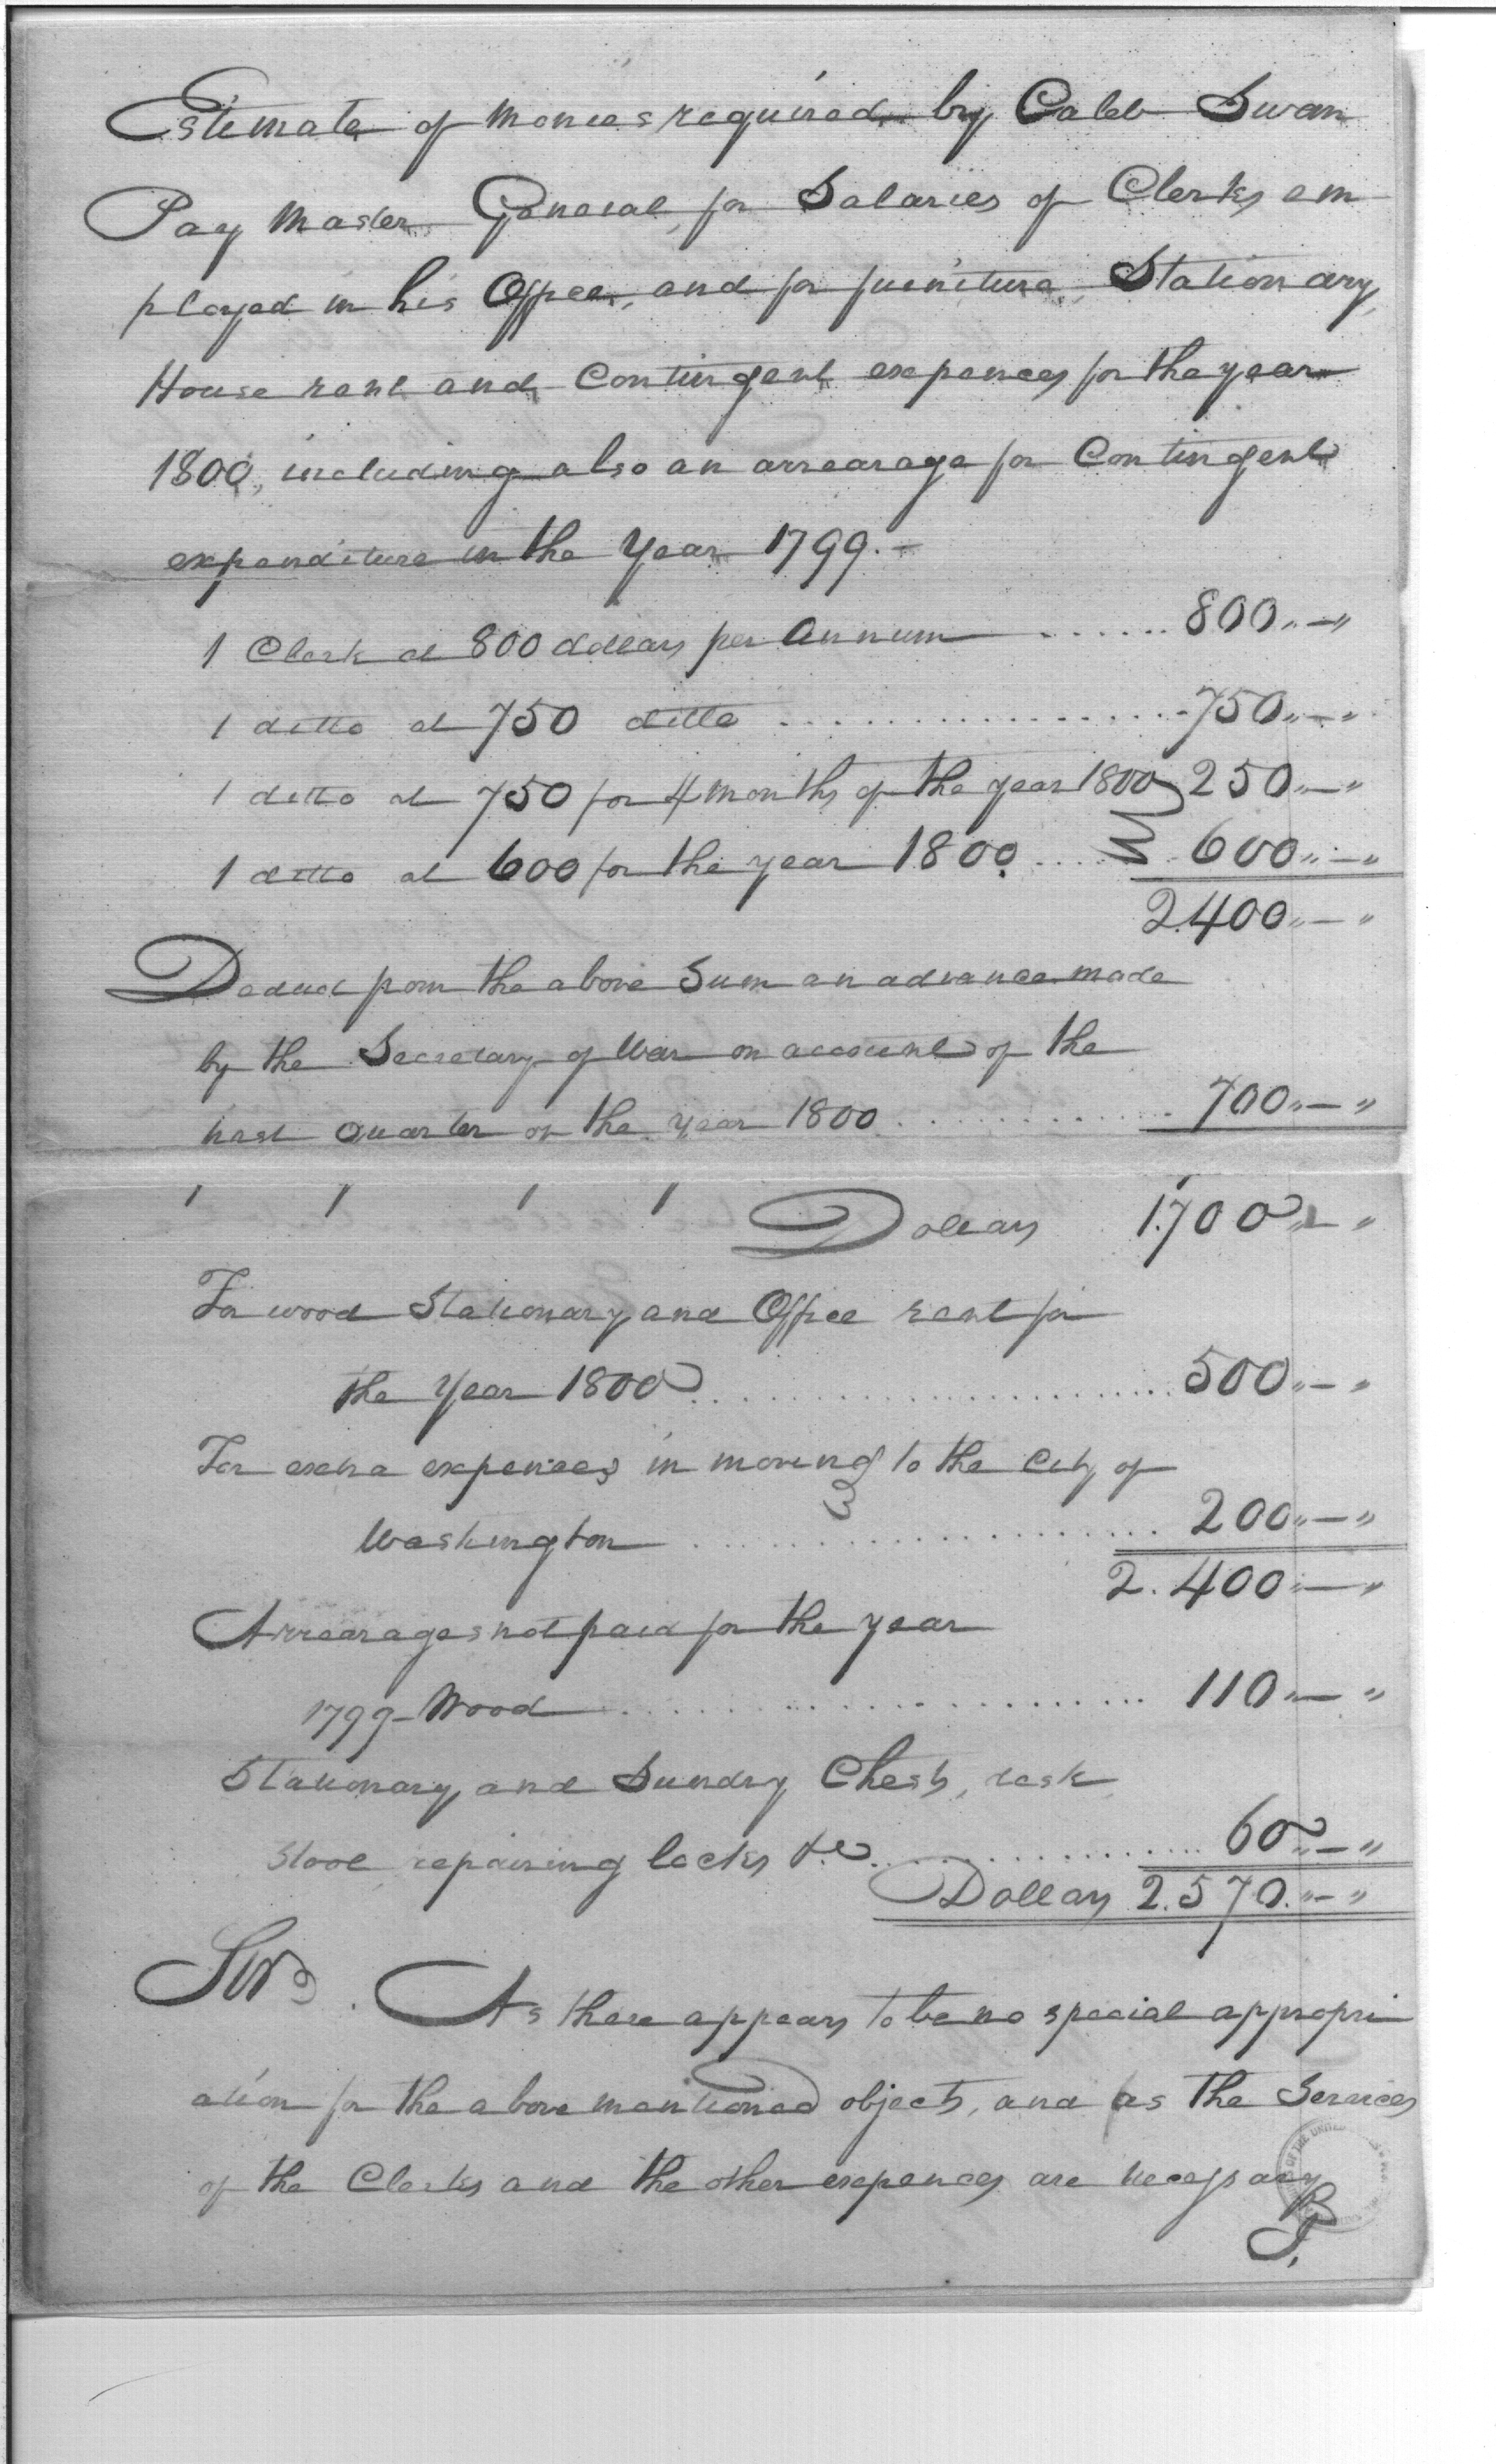 Estimate of monies required by Caleb Swan
Pay Master General, for Salaries of Clerks em
ployed in his Office, and for furniture, Stationary,
House rent and Contingent expences for the year
1800, including also an arrearage for Contingent
expenditure in the Year 1799.-
1 Clerk at 800 dollars per Annum ....... 800"-"
1 ditto at 750 ditto ................ 750"-"
1 ditto at 750 for 4 months of the year 1800 250"-"
1 ditto at 600 for the year 1800 .... 600"-"
2.400"-"
Deduct from the above Sum an advance made
by the Secretary of War on account of the
quarter of the year 1800 ........... 700"-"
Dollars 1.700"-"
For wood Stationary and Office rent for
the Year 1800 ....................... 500"-"
For extra expences in moving to the City of
Washington .................. 200"-"
2.400"-"
Arrearages not paid for the year
1799- Wood .................... 110"-"
Stationary and Sundry Chests, desk
repairing locks &c ................ 60"-"
Dollars 2.570."-"
Sir. As there appears to be no special appropri
ation for the above mentioned objects, and as the Services
of the Clerks and the other expences are necessary
OF THE UNITED